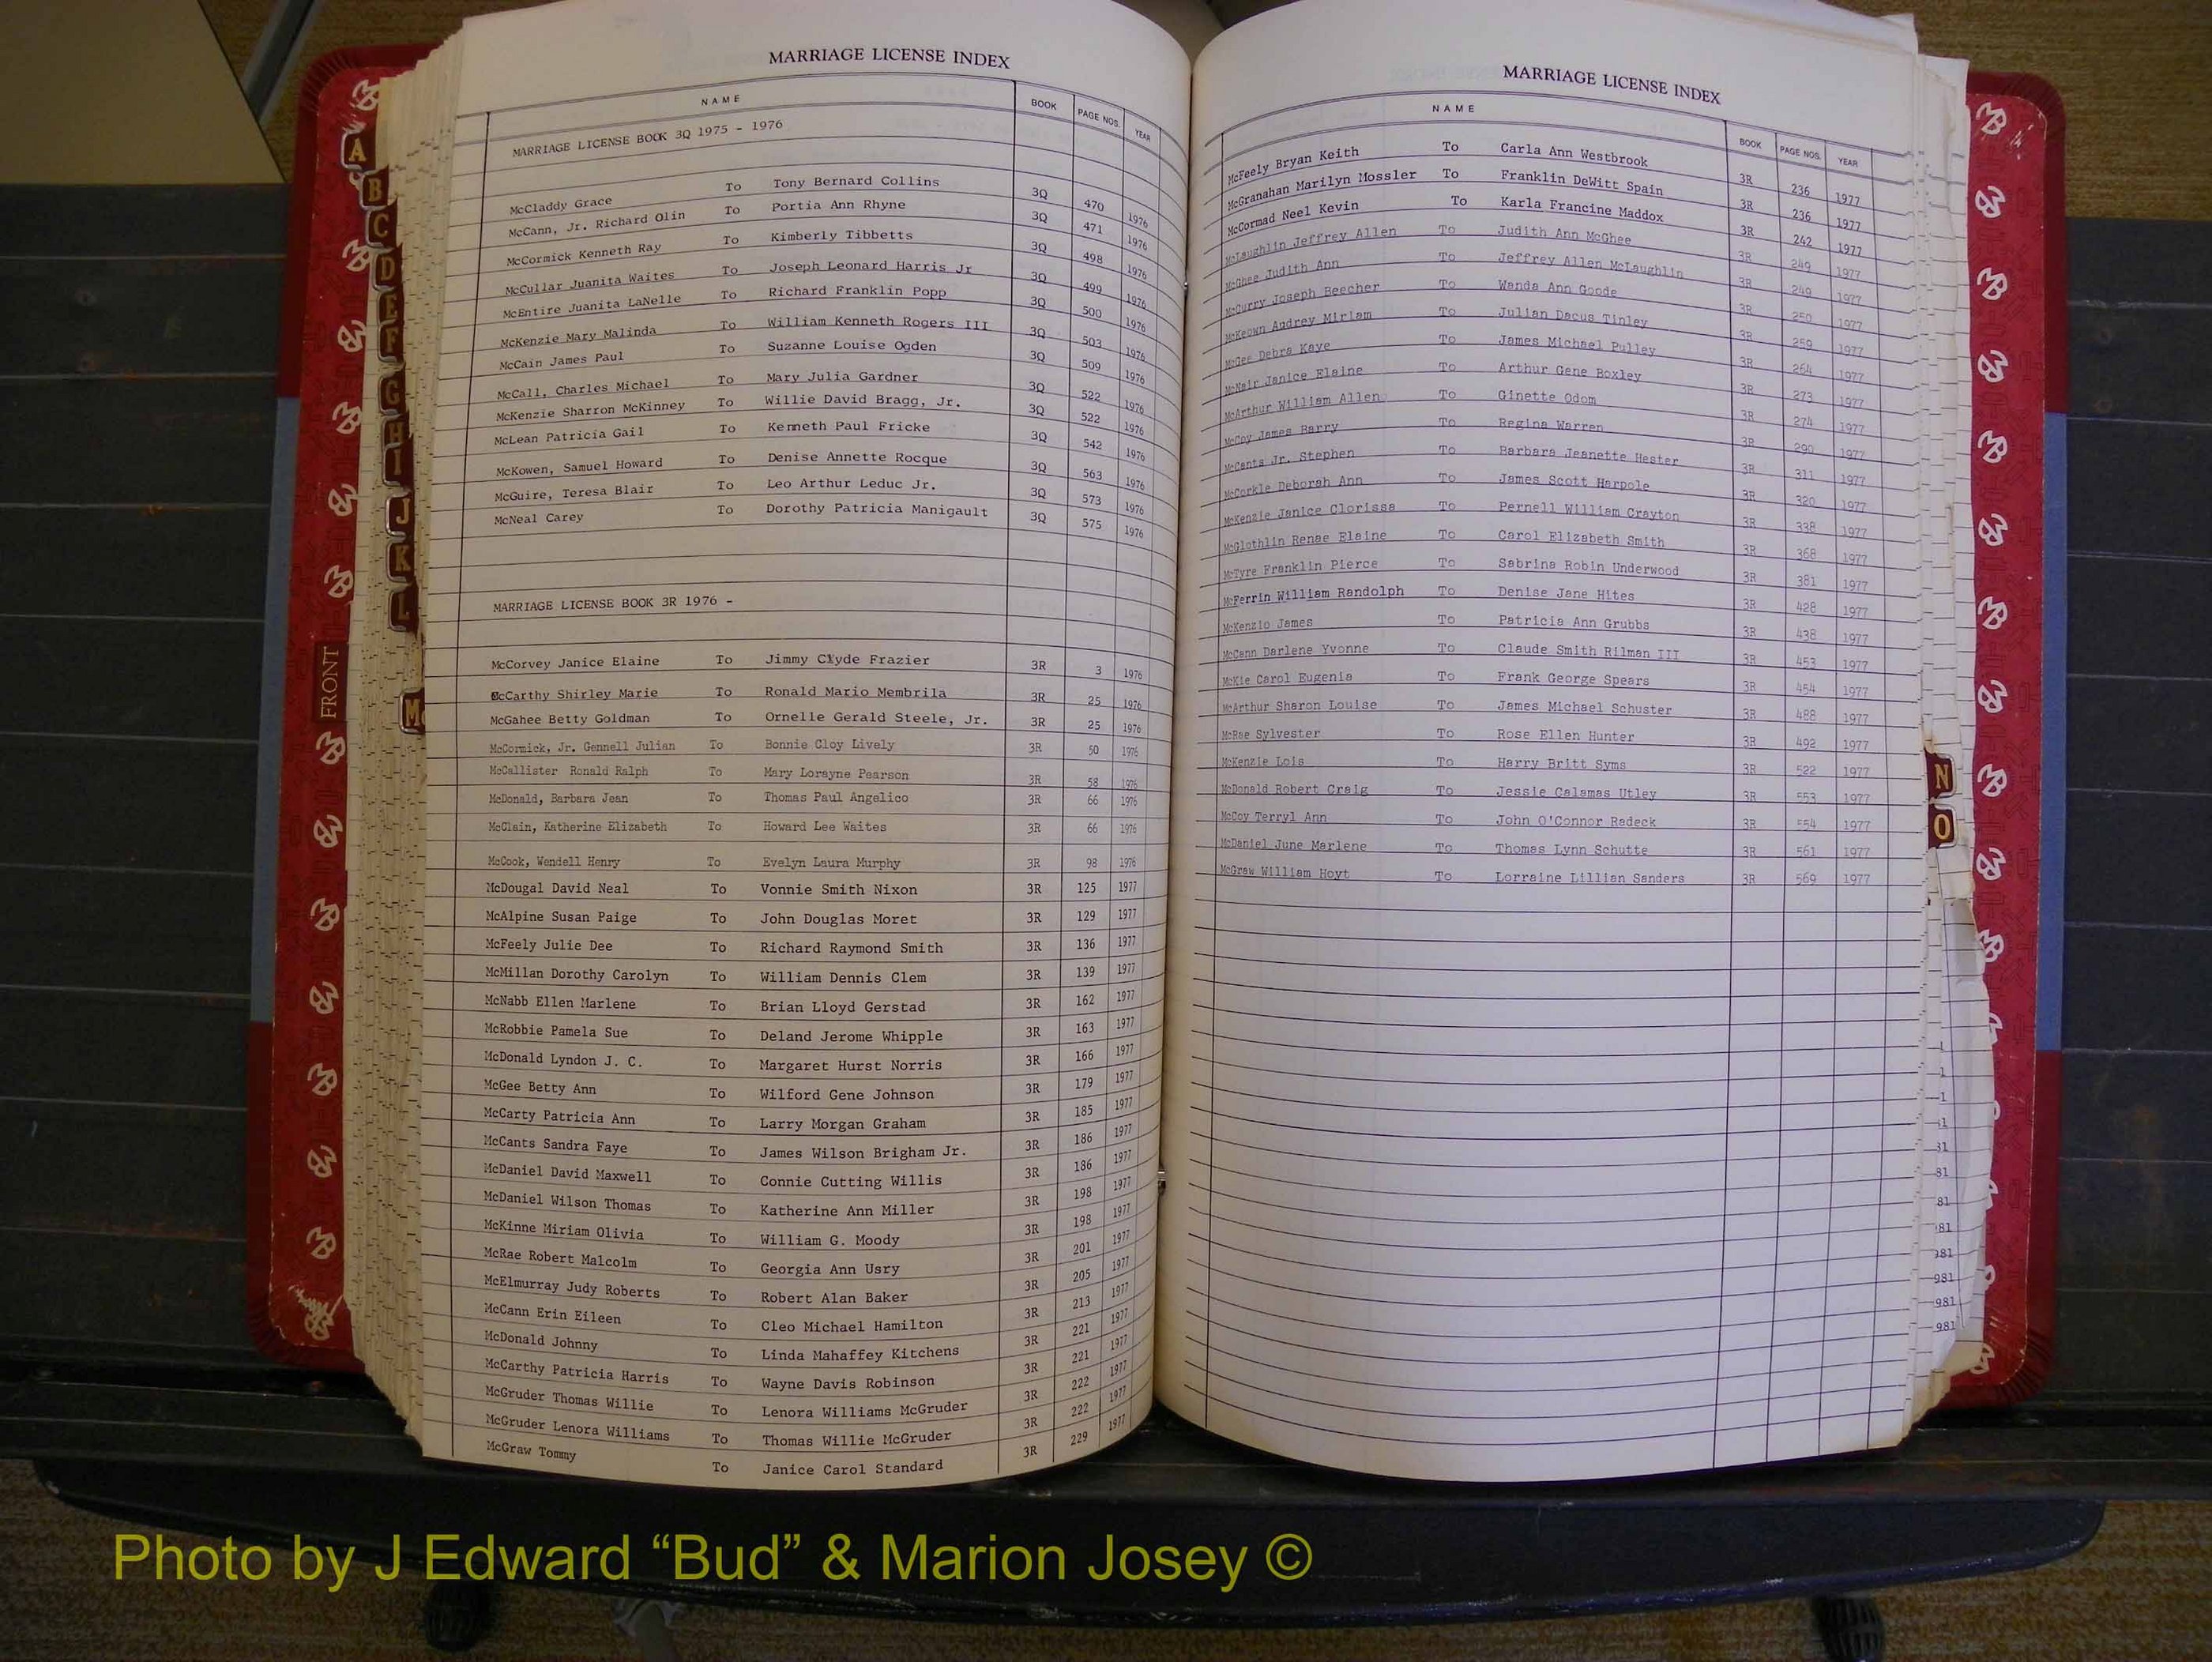 MARRIAGE LICENSE INDEX
NAME BOOK PAGE NOS. YEAR
MARRIAGE LICENSE BOOK 3Q 1975 - 1976
McCladdy Grace To Tony Bernard Collins 3Q 470 1976
McCann, Jr. Richard Olin To Portia Ann Rhyne 3Q 471 1976
McCormick Kenneth Ray To Kimberly Tibbetts 3Q 498 1976
McCullar Juanita Waites To Joseph Leonard Harris Jr 3Q 499 1976
McEntire Juanita LaNelle To Richard Franklin Popp 3Q 500 1976
McKenzie Mary Malinda To William Kenneth Rogers III 3Q 503 1976
McCain James Paul To Suzanne Louise Ogden 3Q 509 1976
McCall, Charles Michael To Mary Julia Gardner 3Q 522 1976
McKenzie Sharron McKinney To Willie David Bragg, Jr. 3Q 522 1976
McLean Patricia Gail To Kenneth Paul Fricke 3Q 542 1976
McKowen, Samuel Howard To Denise Annette Rocque 3Q 563 1976
McGuire, Teresa Blair To Leo Arthur Leduc Jr. 3Q 573 1976
McNeal Carey To Dorothy Patricia Manigault 3Q 575 1976
MARRIAGE LICENSE BOOK 3R 1976 -
McCorvey Janice Elaine To Jimmy Clyde Frazier 3R 3 1976
McCarthy Shirley Marie To Ronald Mario Membrila 3R 25 1976
McGahee Betty Goldman To Ornelle Gerald Steele, Jr. 3R 25 1976
McCormick, Jr. Gennell Julian To Bonnie Cloy Lively 3R 50 1976
McCallister Ronald Ralph To Mary Lorayne Pearson 3R 58 1976
McDonald, Barbara Jean To Thomas Paul Angelico 3R 66 1976
McClain, Katherine Elizabeth To Howard Lee Waites 3R 66 1976
McCook, Wendell Henry To Evelyn Laura Murphy 3R 98 1976
McDougal David Neal To Vonnie Smith Nixon 3R 125 1977
McAlpine Susan Paige To John Douglas Moret 3R 129 1977
McFeely Julie Dee To Richard Raymond Smith 3R 136 1977
McMillan Dorothy Carolyn To William Dennis Clem 3R 139 1977
McNabb Ellen Marlene To Brian Lloyd Gerstad 3R 162 1977
McRobbie Pamela Sue To Deland Jerome Whipple 3R 163 1977
McDonald Lyndon J. C. To Margaret Hurst Norris 3R 166 1977
McGee Betty Ann To Wilford Gene Johnson 3R 179 1977
McCarty Patricia Ann To Larry Morgan Graham 3R 185 1977
McCants Sandra Faye To James Wilson Brigham Jr. 3R 186 1977
McDaniel David Maxwell To Connie Cutting Willis 3R 186 1977
McDaniel Wilson Thomas To Katherine Ann Miller 3R 198 1977
McKinne Miriam Olivia To William G. Moody 3R 198 1977
McRae Robert Malcolm To Georgia Ann Usry 3R 201 1977
McElmurray Judy Roberts To Robert Alan Baker 3R 205 1977
McCann Erin Eileen To Cleo Michael Hamilton 3R 213 1977
McDonald Johnny To Linda Mahaffey Kitchens 3R 221 1977
McCarthy Patricia Harris To Wayne Davis Robinson 3R 221 1977
McGruder Thomas Willie To Lenora Williams McGruder 3R 222 1977
McGruder Lenora Williams To Thomas Willie McGruder 3R 222 1977
McGraw Tommy To Janice Carol Standard 3R 229 1977
MARRIAGE LICENSE INDEX
NAME BOOK PAGE NOS. YEAR
McFeely Bryan Keith To Carla Ann Westbrook 3R 236 1977
McGranahan Marilyn Mossler To Franklin DeWitt Spain 3R 236 1977
McCormad Neel Kevin To Karla Francine Maddox 3R 242 1977
McLaughlin Jeffrey Allen To Judith Ann McGhee 3R 249 1977
McGhee Judith Ann To Jeffrey Allen McLaughlin 3R 249 1977
McCurry Joseph Beecher To Wanda Ann Goode 3R 250 1977
McKeown Audrey Miriam To Julian Dacus Tinley 3R 259 1977
McGee Debra Kaye To James Michael Pulley 3R 264 1977
McNair Janice Elaine To Arthur Gene Boxley 3R 273 1977
McArthur William Allen To Ginette Odom 3R 274 1977
McCoy James Barry To Regina Warren 3R 290 1977
McCants Jr. Stephen To Barbara Jeanette Hester 3R 311 1977
McCorkle Deborah Ann To James Scott Harpole 3R 320 1977
McKenzie Janice Clorissa To Pernell William Crayton 3R 338 1977
McGlothlin Renae Elaine To Carol Elizabeth Smith 3R 368 1977
McTyre Franklin Pierce To Sabrina Robin Underwood 3R 381 1977
McFerrin William Randolph To Denise Jane Hites 3R 428 1977
McKenzio James To Patricia Ann Grubbs 3R 438 1977
McCann Darlene Yvonne To Claude Smith Rilman III 3R 453 1977
McKie Carol Eugenia To Frank George Spears 3R 454 1977
McArthur Sharon Louise To James Michael Schuster 3R 488 1977
McRae Sylvester To Rose Ellen Hunter 3R 492 1977
McKenzie Lois To Harry Britt Syms 3R 522 1977
McDonald Robert Craig To Jessie Calamas Utley 3R 553 1977
McCoy Terryl Ann To John O'Connor Radeck 3R 554 1977
McDaniel June Marlene To Thomas Lynn Schutte 3R 561 1977
McGraw William Hoyt To Lorraine Lillian Sanders 3R 569 1977
A
B
C
D
E
F
G
H
I
J
K
L
Mc
FRONT
N
O
1
1
1
81
81
81
81
981
981
981
981
Photo by J Edward “Bud” & Marion Josey ©